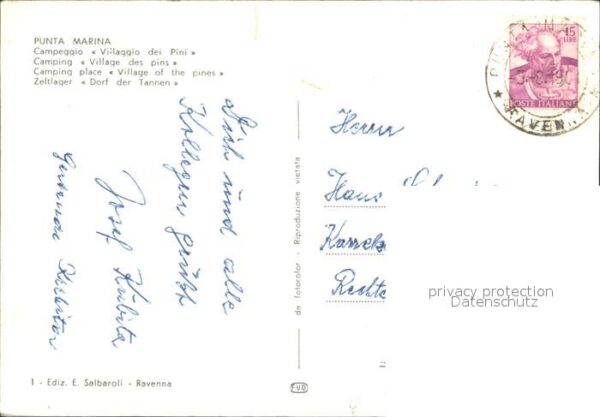 PUNTA MARINA
Campeggio « Villaggio dei Pini »
Camping « Village des pins »
Camping place « Village of the pines »
Zeltlager « Dorf der Tannen »
Dich und alle
Kollegen grüßt
Josef Kubita
Gertrude
da fotocolor - Riproduzione vietata
1 - Ediz. E. Salbaroli - Ravenna
45 LIRE
POSTE ITALIANE
RAVENNA
Herrn
Hans
privacy protection
Datenschutz